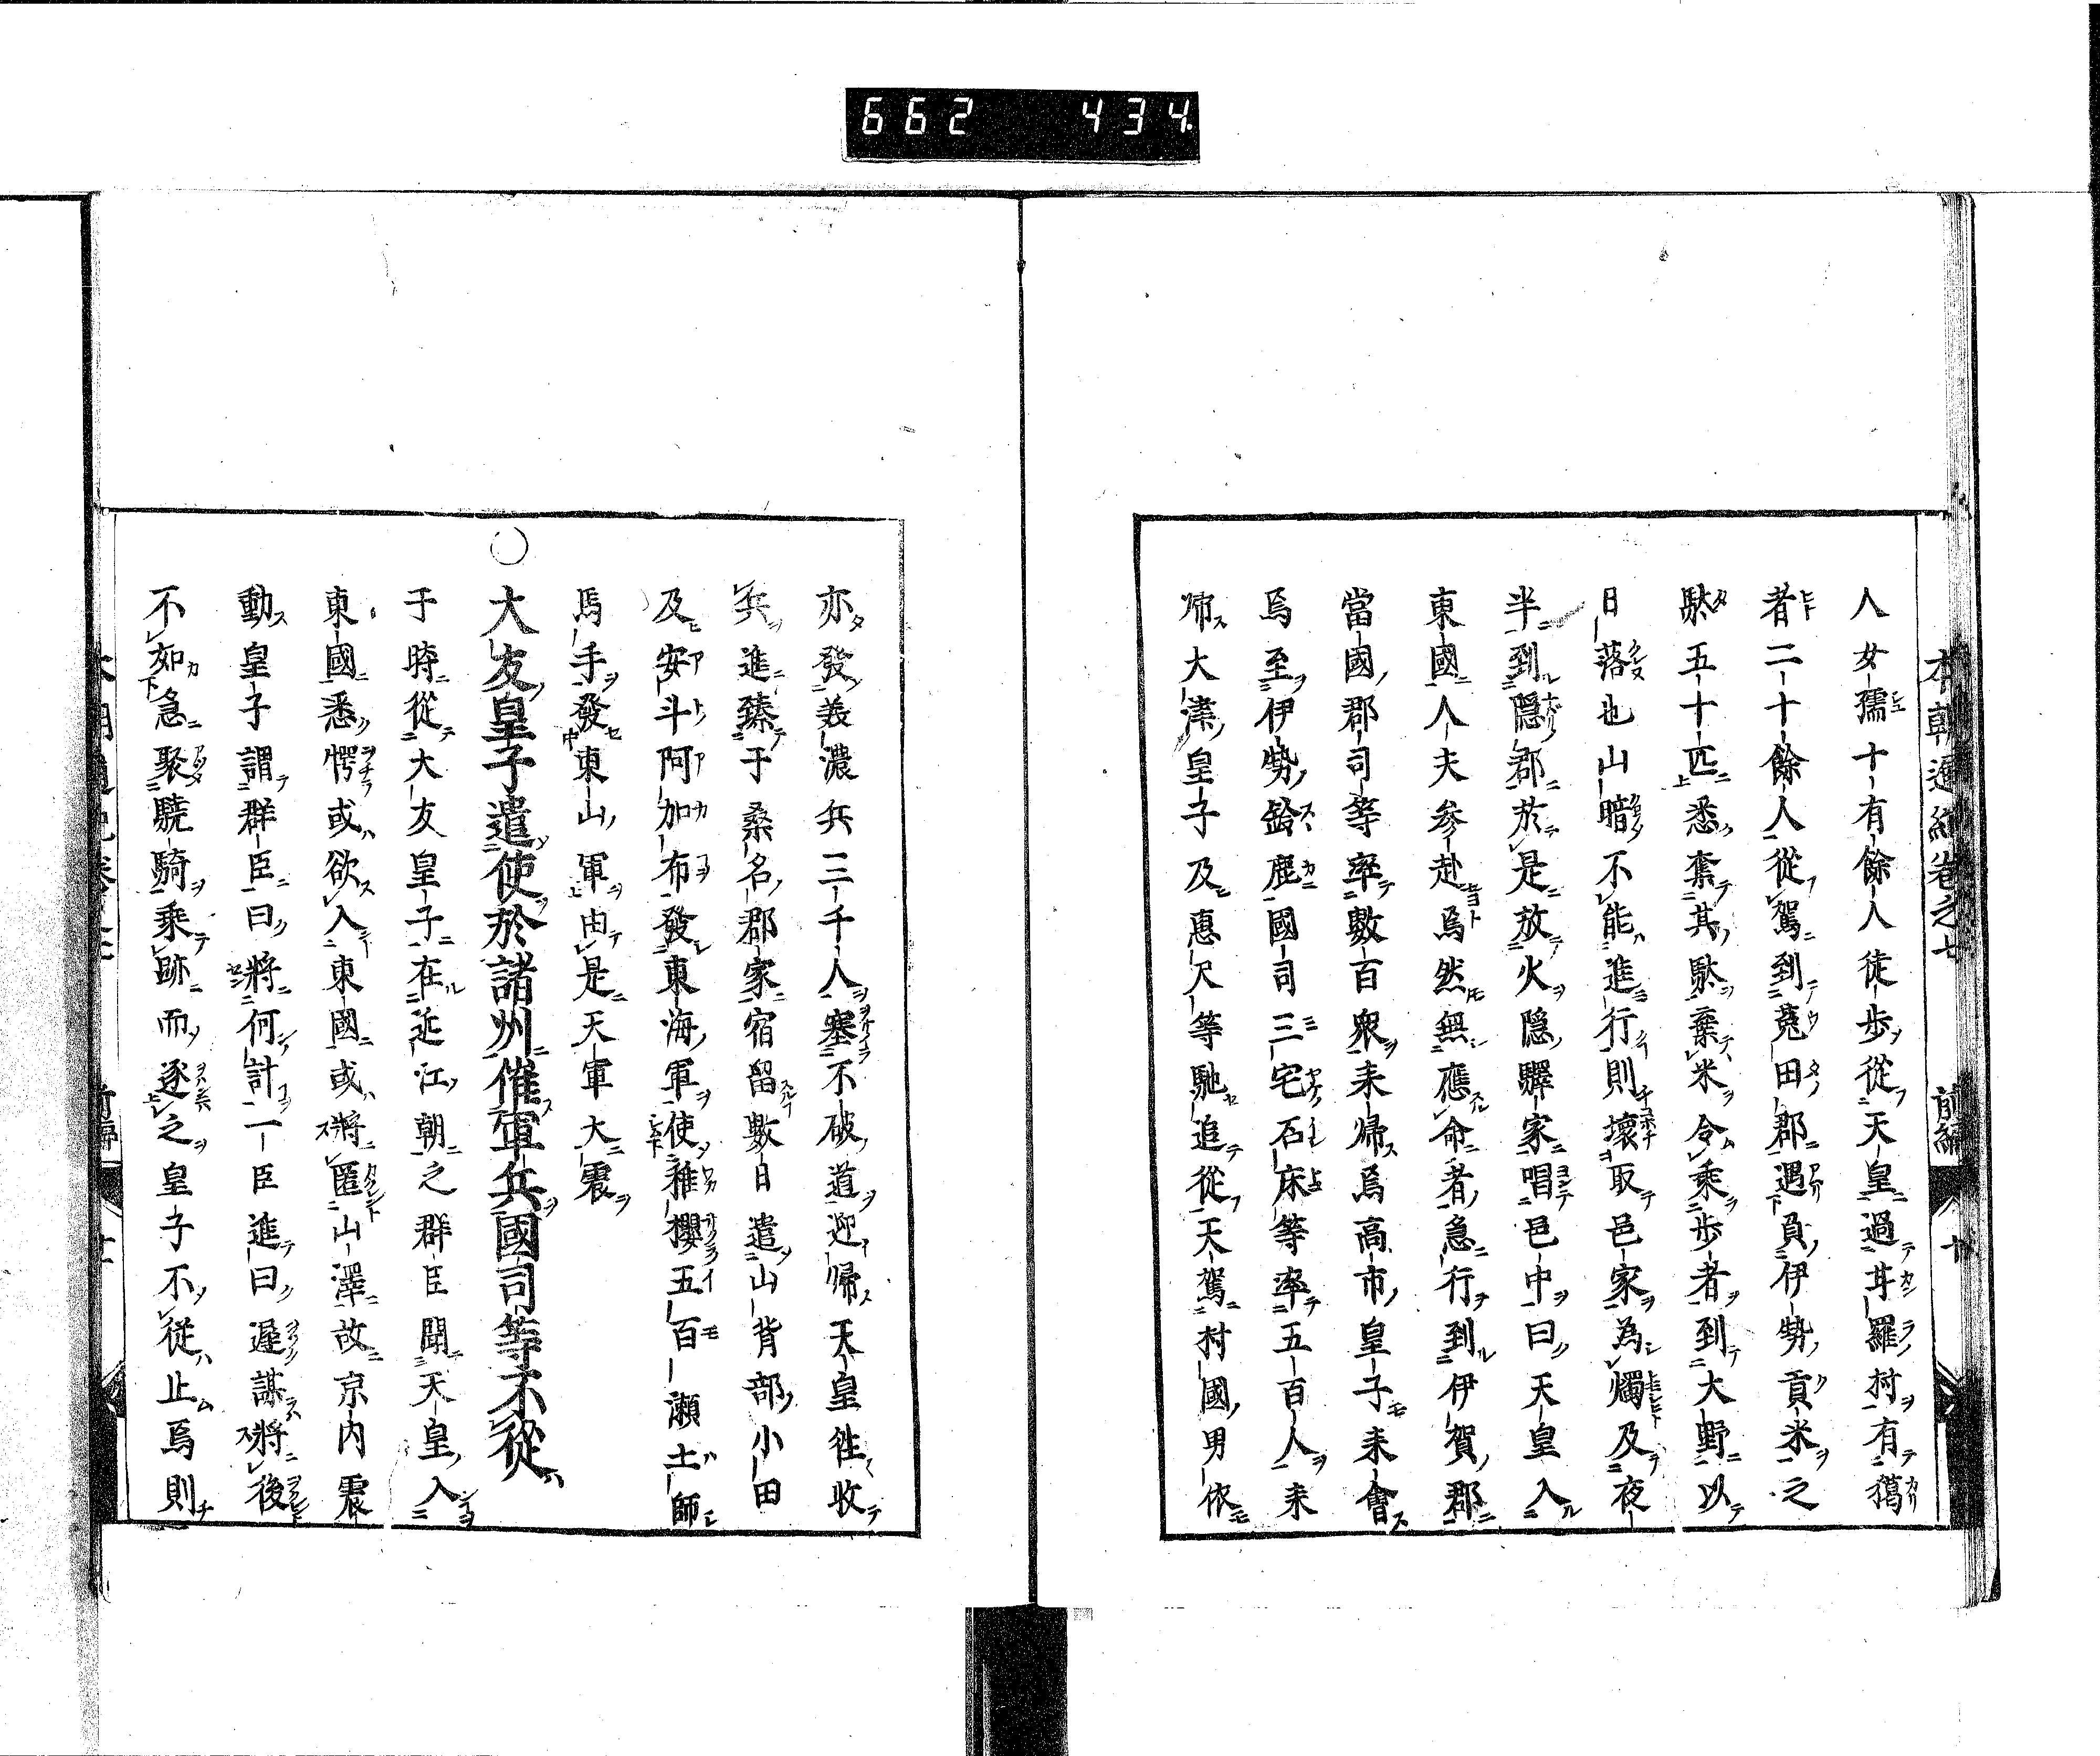 662 434
本朝通紀卷之七 前編 十
人女孺十有餘人徒歩從天皇過甘羅村有獦
者二十餘人從駕到菟田郡遇負伊勢貢米之
駄五十匹悉棄其駄棄米令乘歩者到大野以
日落也山暗不能進行則壞取邑家為燭及夜
半到隠郡於是放火隠驛家唱邑中曰天皇入
東國人夫参赴焉然無應命者急行到伊賀郡
當國郡司等率數百衆来帰焉高市皇子来會
焉至伊勢鈴鹿國司三宅石床等率五百人来
帰大津皇子及惠尺等馳追從天駕村國男依
亦發義濃兵三千人塞不破道迎帰天皇徃收
兵進臻于桑名郡家宿留數日遣山背部小田
及安斗阿加布發東海軍使稚櫻五百瀬土師
馬手發東山軍由是天軍大震
○大友皇子遣使於諸州催軍兵國司等不從
于時從大友皇子在近江朝之群臣聞天皇入
東國悉愕或欲入東國或將匿山澤故京内震
動皇子謂群臣曰將何計一臣進曰遲謀將後
不如急聚驍騎乘跡而逐之皇子不從止焉則